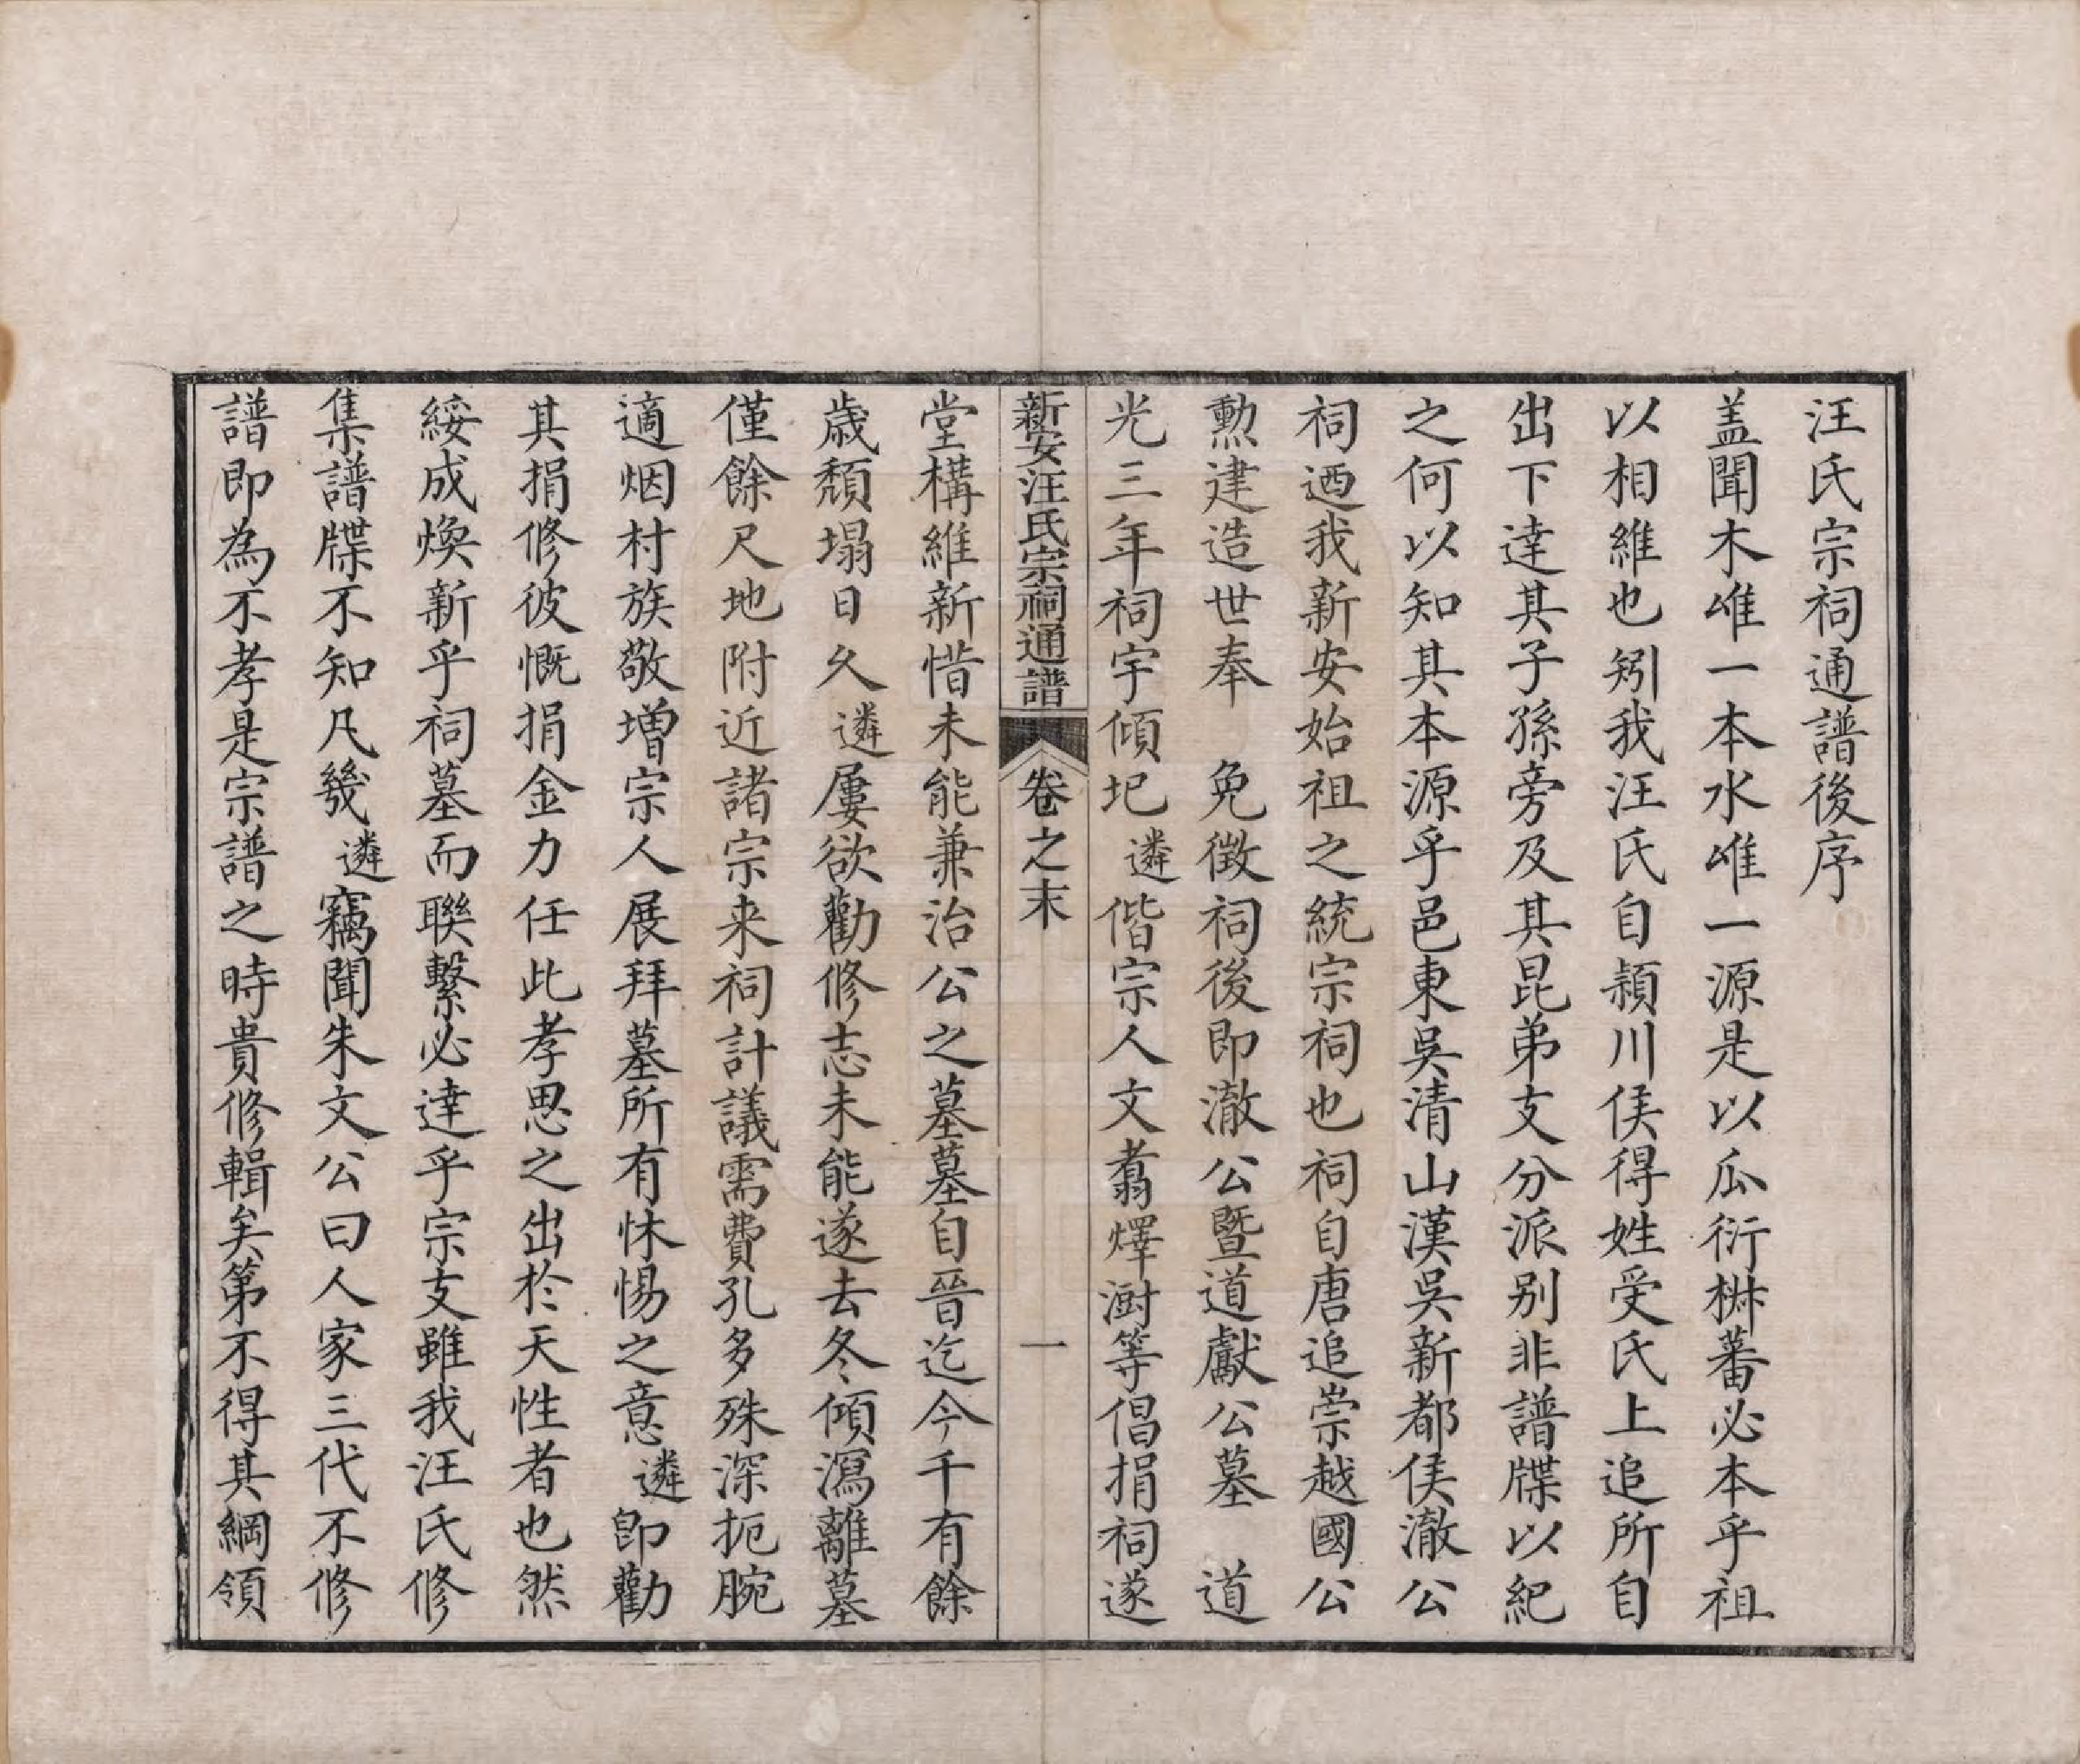 汪氏宗祠通譜後序
盖聞木唯一本水唯一源是以瓜衍椒蕃必本乎祖
以相維也矧我汪氏自潁川侯得姓受氏上追所自
出下達其子孫旁及其昆弟支分派别非譜牒以紀
之何以知其本源乎邑東吳清山漢吳新都侯澈公
祠迺我新安始祖之統宗祠也祠自唐追崇越國公
勲建造世奉　免徴祠後即澈公暨道獻公墓　道
光三年祠宇傾圯遴偕宗人文翥燡澍等倡捐祠遂
新安汪氏宗祠通譜　卷之末　一
堂構維新惜未能兼治公之墓墓自晉迄今千有餘
歳頽塌日久遴屢欲勸修志未能遂去冬傾瀉離墓
僅餘尺地附近諸宗来祠計議需費孔多殊深扼腕
適烟村族敬增宗人展拜墓所有怵惕之意遴即勸
其捐修彼慨捐金力任此孝思之出於天性者也然
綏成煥新乎祠墓而聯繫必達乎宗支雖我汪氏修
集譜牒不知凡幾遴竊聞朱文公曰人家三代不修
譜即為不孝是宗譜之時貴修輯矣第不得其綱領